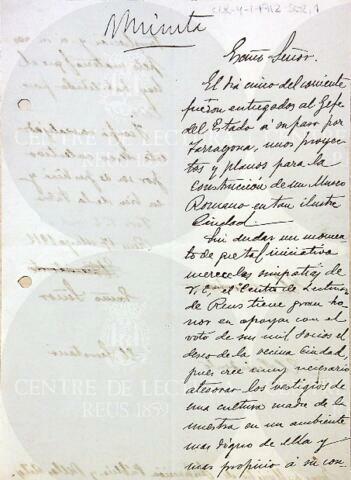 Minuta
Exmo Señor.
El dia cinco del corriente
fueron entregados al Gefe
del Estado á su paso por
Tarragona, unos proyec-
tos y planos para la
construccion de un Museo
Romano en tan ilustre
Ciudad.
Sin dudar un momen-
to de que tal iniciativa
merece las simpatias de
V.E., el Centro de Lectura
de Reus tiene gran ho-
nor en apoyar con el
voto de sus mil socios el
deseo de la vecina Ciudad,
pues cree muy necesario
atesorar los vestigios de
una cultura madre de la
nuestra en un ambiente
mas digno de ella y
mas propicio á su con-
CENTRE DE LECTURA
REUS 1859
CENTRE DE LECTURA
REUS 1859